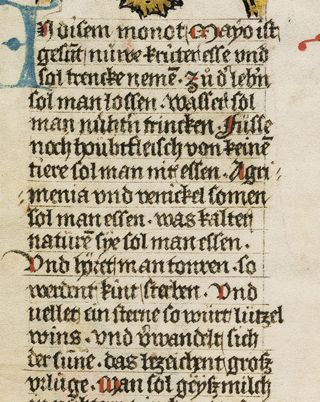 In disem monot Mayo ist
gesunt nuwe krüter esse vnd
sol trencke nemē · Zů d' lebn
sol man lossen · wasser sol
man nůchtn trincken Füsse
noch houbtfleisch von keinē
tiere sol man nit essen · Agri
menia vnd venickel somen
sol man essen · was kalter
naturē sye sol man essen ·
Vnd höret man tonren · so
werdent kint sterben · Vnd
vellet ein sterne so wurt lützel
wins · vnd v'wandelt sich
der sune · das bezeichent groß
vrlüge · Man sol geyß milch